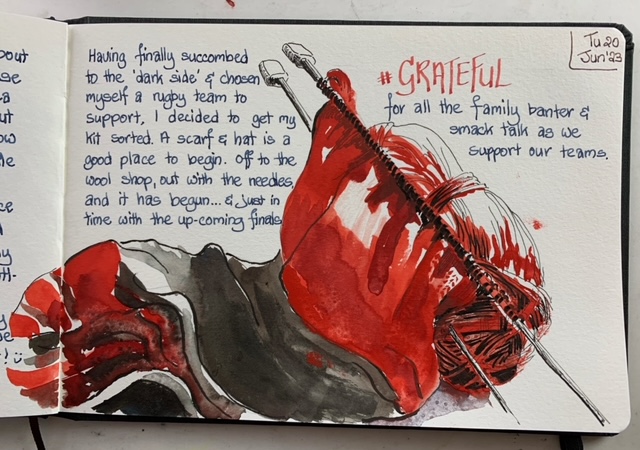 bout
se
a
ut
ow
le
ce
d
y
y
e
! ü
Having finally succombed
to the 'dark side' & chosen
myself a rugby team to
support, I decided to get my
kit sorted. A scarf & hat is a
good place to begin. Off to the
wool shop, out with the needles,
and it has begun... & just in
time with the up-coming finals
#GRATEFUL
for all the family banter &
smack talk as we
support our teams.
Tu 20
Jun '23